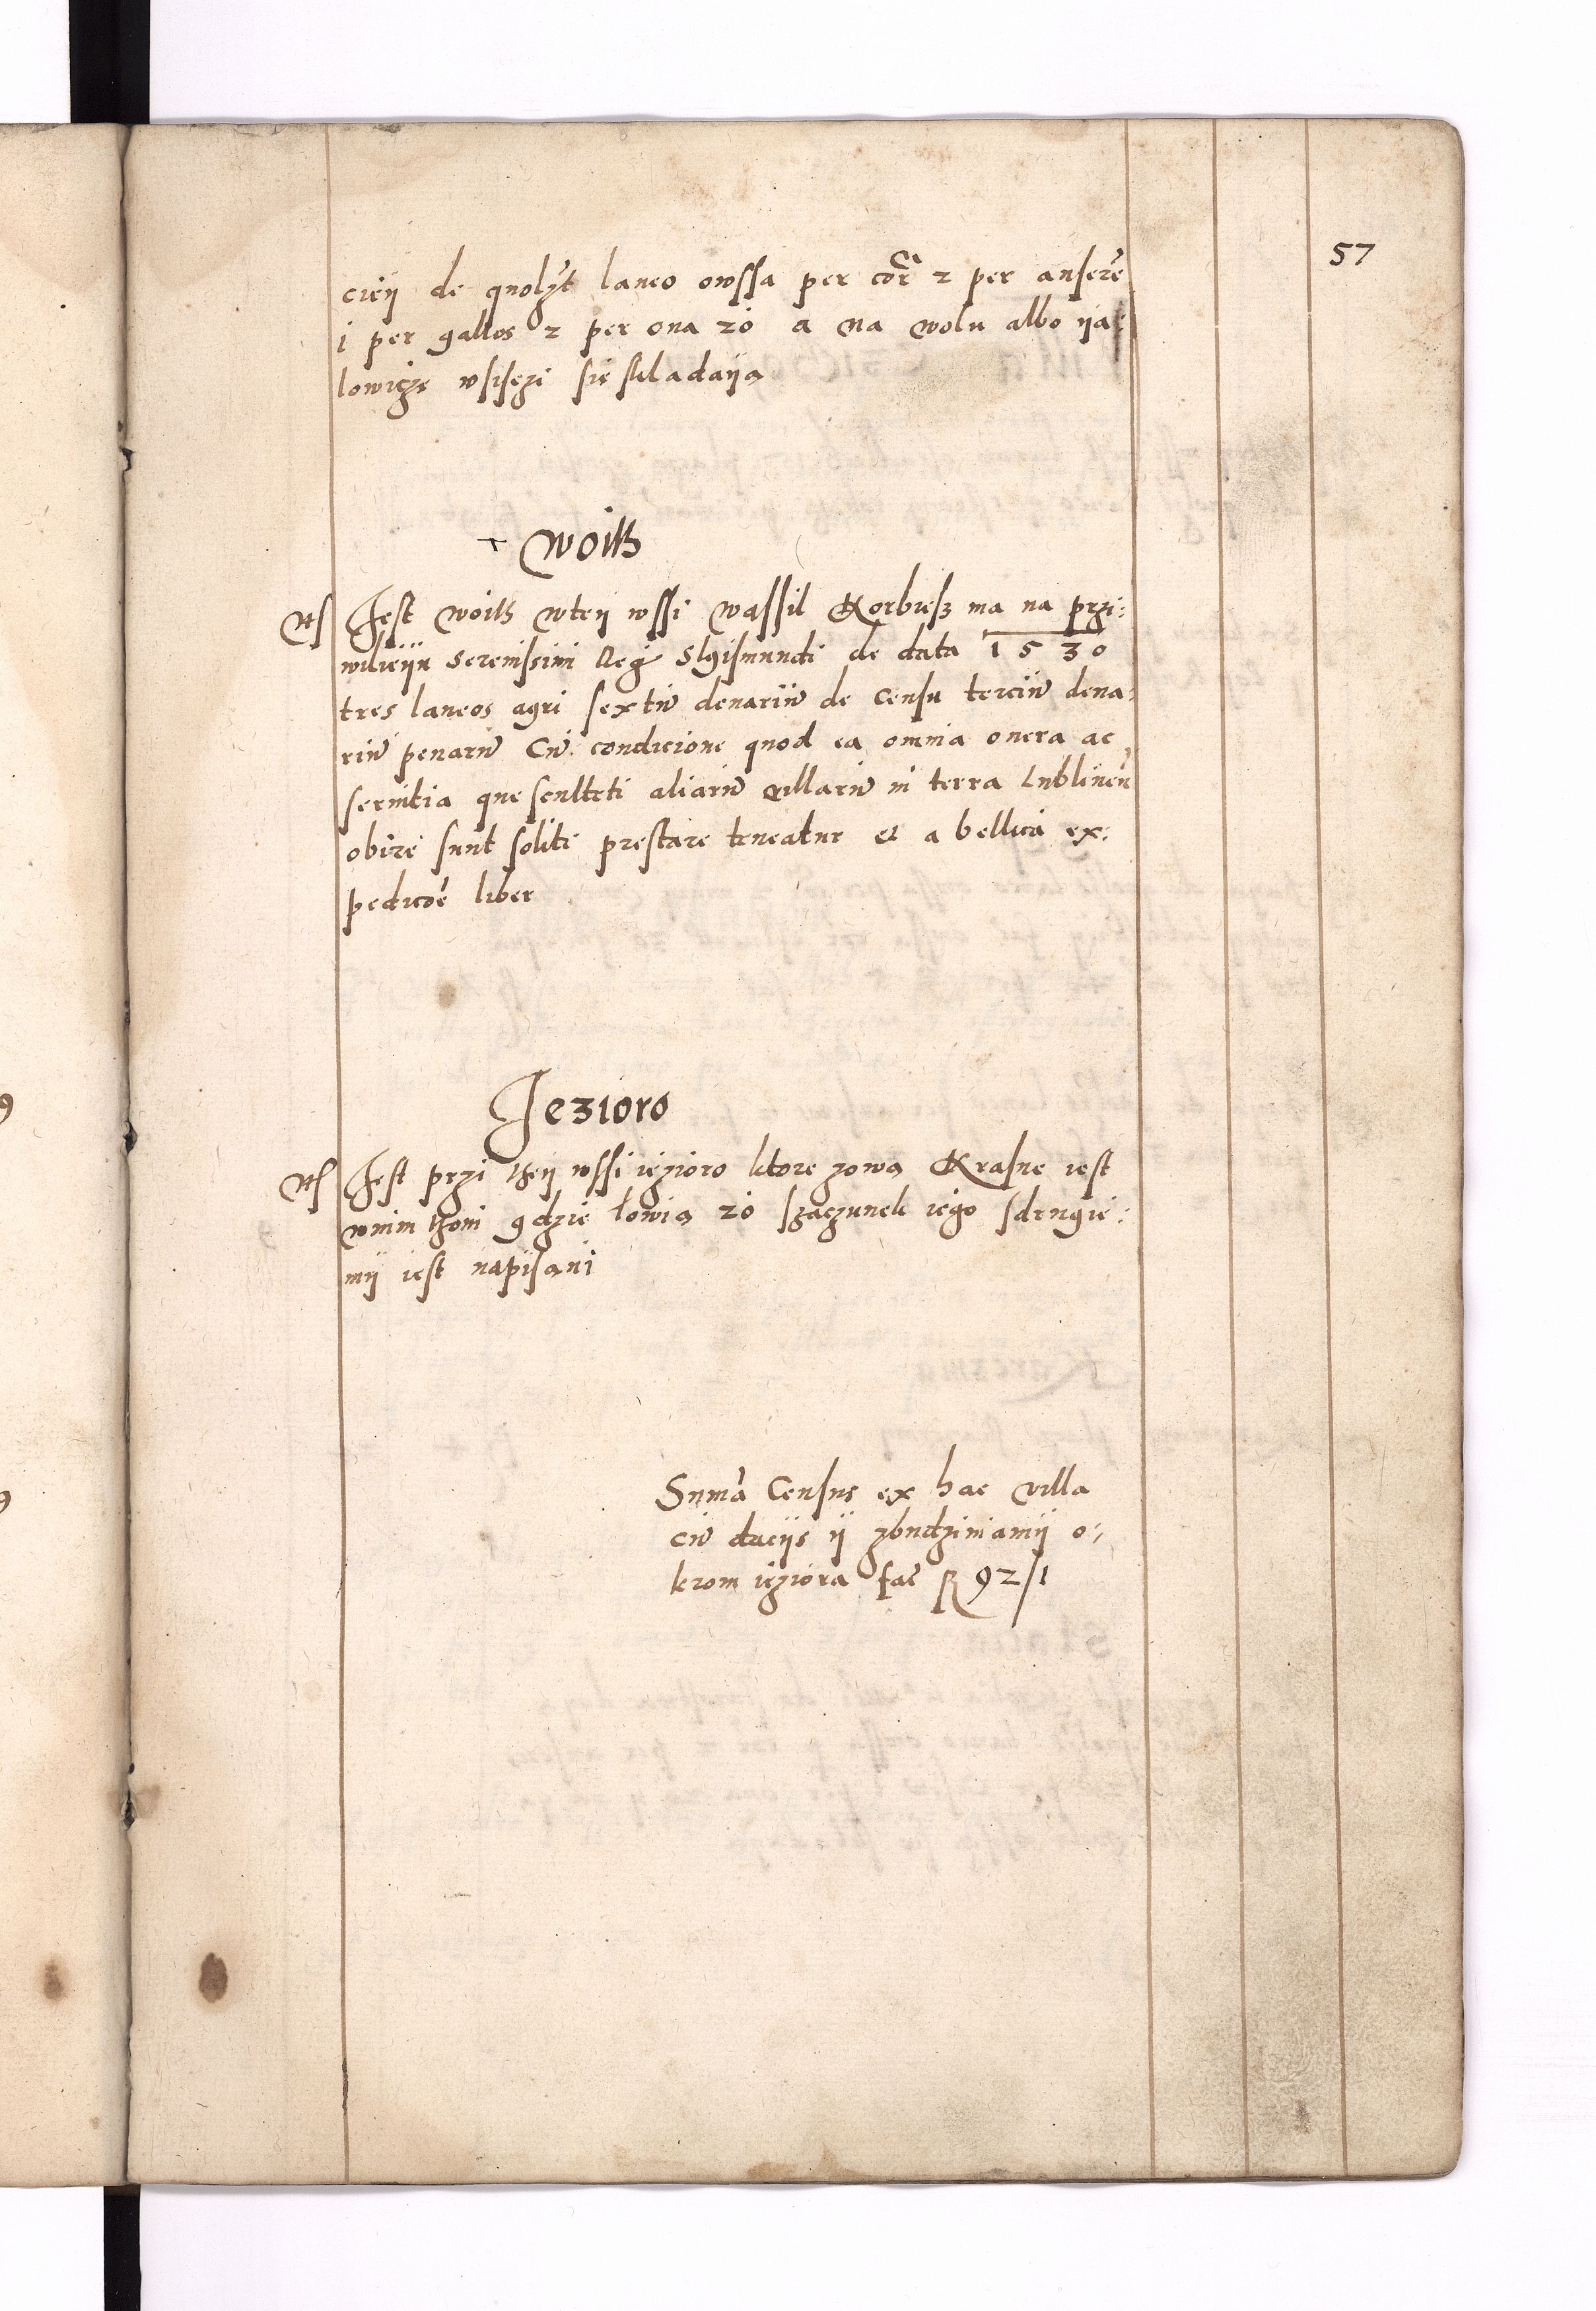 57
cieÿ de quolzt laneo owssa per cor̃ 2 per ansere
i per gallos 2 per ona 20 a na wolu albo ÿa:
lowicze wsisczi sie skladaÿą
Woitħ
Jest woitħ wteÿ wssi Wassil Korbiesz ma na przi:
wileÿu Serenissimi Reg Sigismundi de data 1530
tres laneos agri sextũ denariũ de censu terciũ dena:
riũ penarũ Cũ condicione quod ea omnia onera ac
seruitia que sculteti aliarũ villarũ in terra Lublineñ
obire sunt soliti prestare teneatur et a bellica ex:
pedicõe liber
Jezioro
Jest przi theÿ wssi iezioro ktore zową Krasne iest
wnim thoni gdzie łowią 20 szaczunek iego sdrugie:
mÿ iest napisani
Sum̃a Census ex hac villa
cũ daciis ÿ zbudziniamÿ o:
krom ieziora fac̃ R 92/1